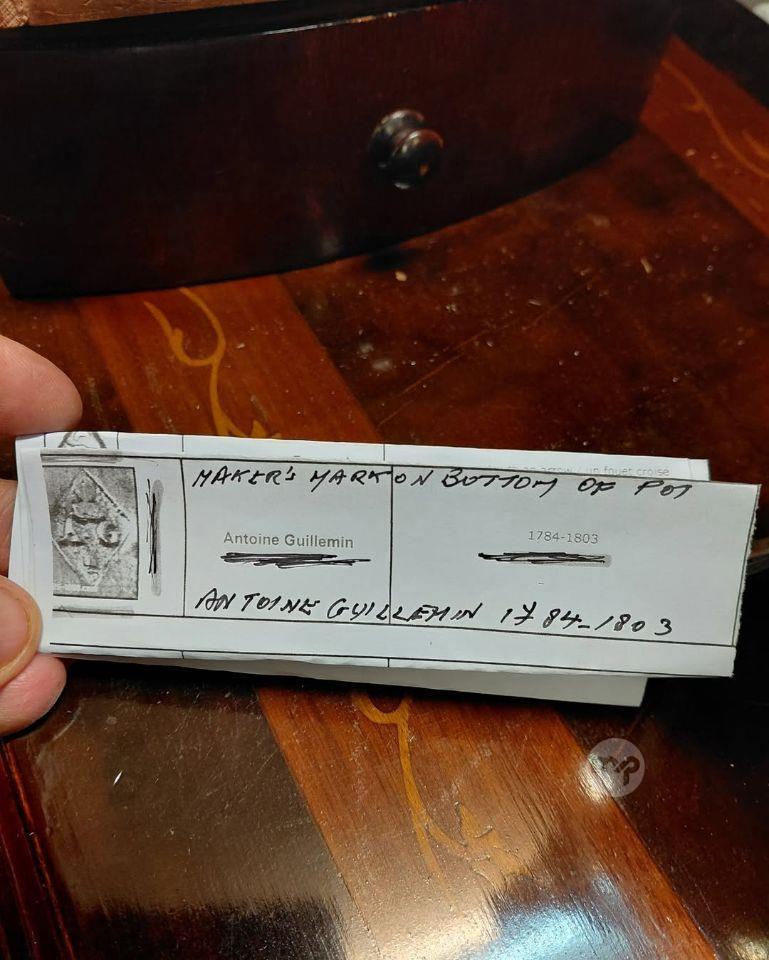 arrow / un fouet croise
MAKER'S MARK ON BOTTOM OF POT
A G
Antoine Guillemin 1784-1803
ANTOINE GUILLEMIN 1784-1803